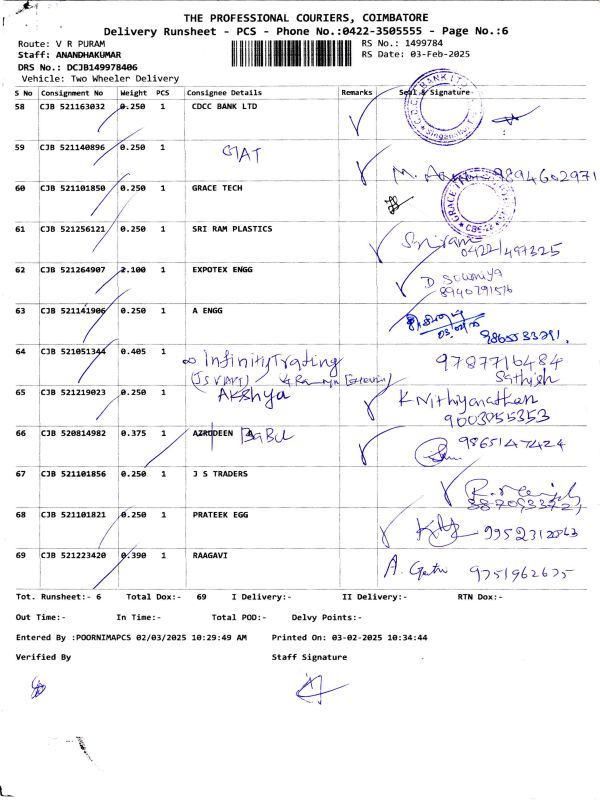 THE PROFESSIONAL COURIERS, COIMBATORE
Delivery Runsheet - PCS - Phone No.:0422-3505555 - Page No.:6
Route: V R PURAM
RS No.: 1499784
Staff: ANANDHAKUMAR
RS Date: 03-Feb-2025
DRS No.: DCJB149978406
Vehicle: Two Wheeler Delivery
S No Consignment No Weight PCS Consignee Details Remarks Seal & Signature
58 CJB 521163032 0.250 1 CDCC BANK LTD
59 CJB 521140896 0.250 1 GTAT
9894602971
60 CJB 521101850 0.250 1 GRACE TECH
61 CJB 521256121 0.250 1 SRI RAM PLASTICS Sriram
0422/497325
62 CJB 521264907 2.100 1 EXPOTEX ENGG D Sowmiya
8940791516
63 CJB 521141906 0.250 1 A ENGG
9865533291
64 CJB 521051344 0.405 1 Infinity Trading 9787716484
Sathish
65 CJB 521219023 0.250 1 Akshya K Nithiyanathan
9003955353
66 CJB 520814982 0.375 1 AZRUDEEN A Babu 9865147424
67 CJB 521101856 0.250 1 J S TRADERS
68 CJB 521101821 0.250 1 PRATEEK EGG 9952312063
69 CJB 521223420 0.390 1 RAAGAVI A. Geetha 9751962675
Tot. Runsheet:- 6 Total Dox:- 69 I Delivery:- II Delivery:- RTN Dox:-
Out Time:- In Time:- Total POD:- Delvy Points:-
Entered By :POORNIMAPCS 02/03/2025 10:29:49 AM Printed On: 03-02-2025 10:34:44
Verified By Staff Signature